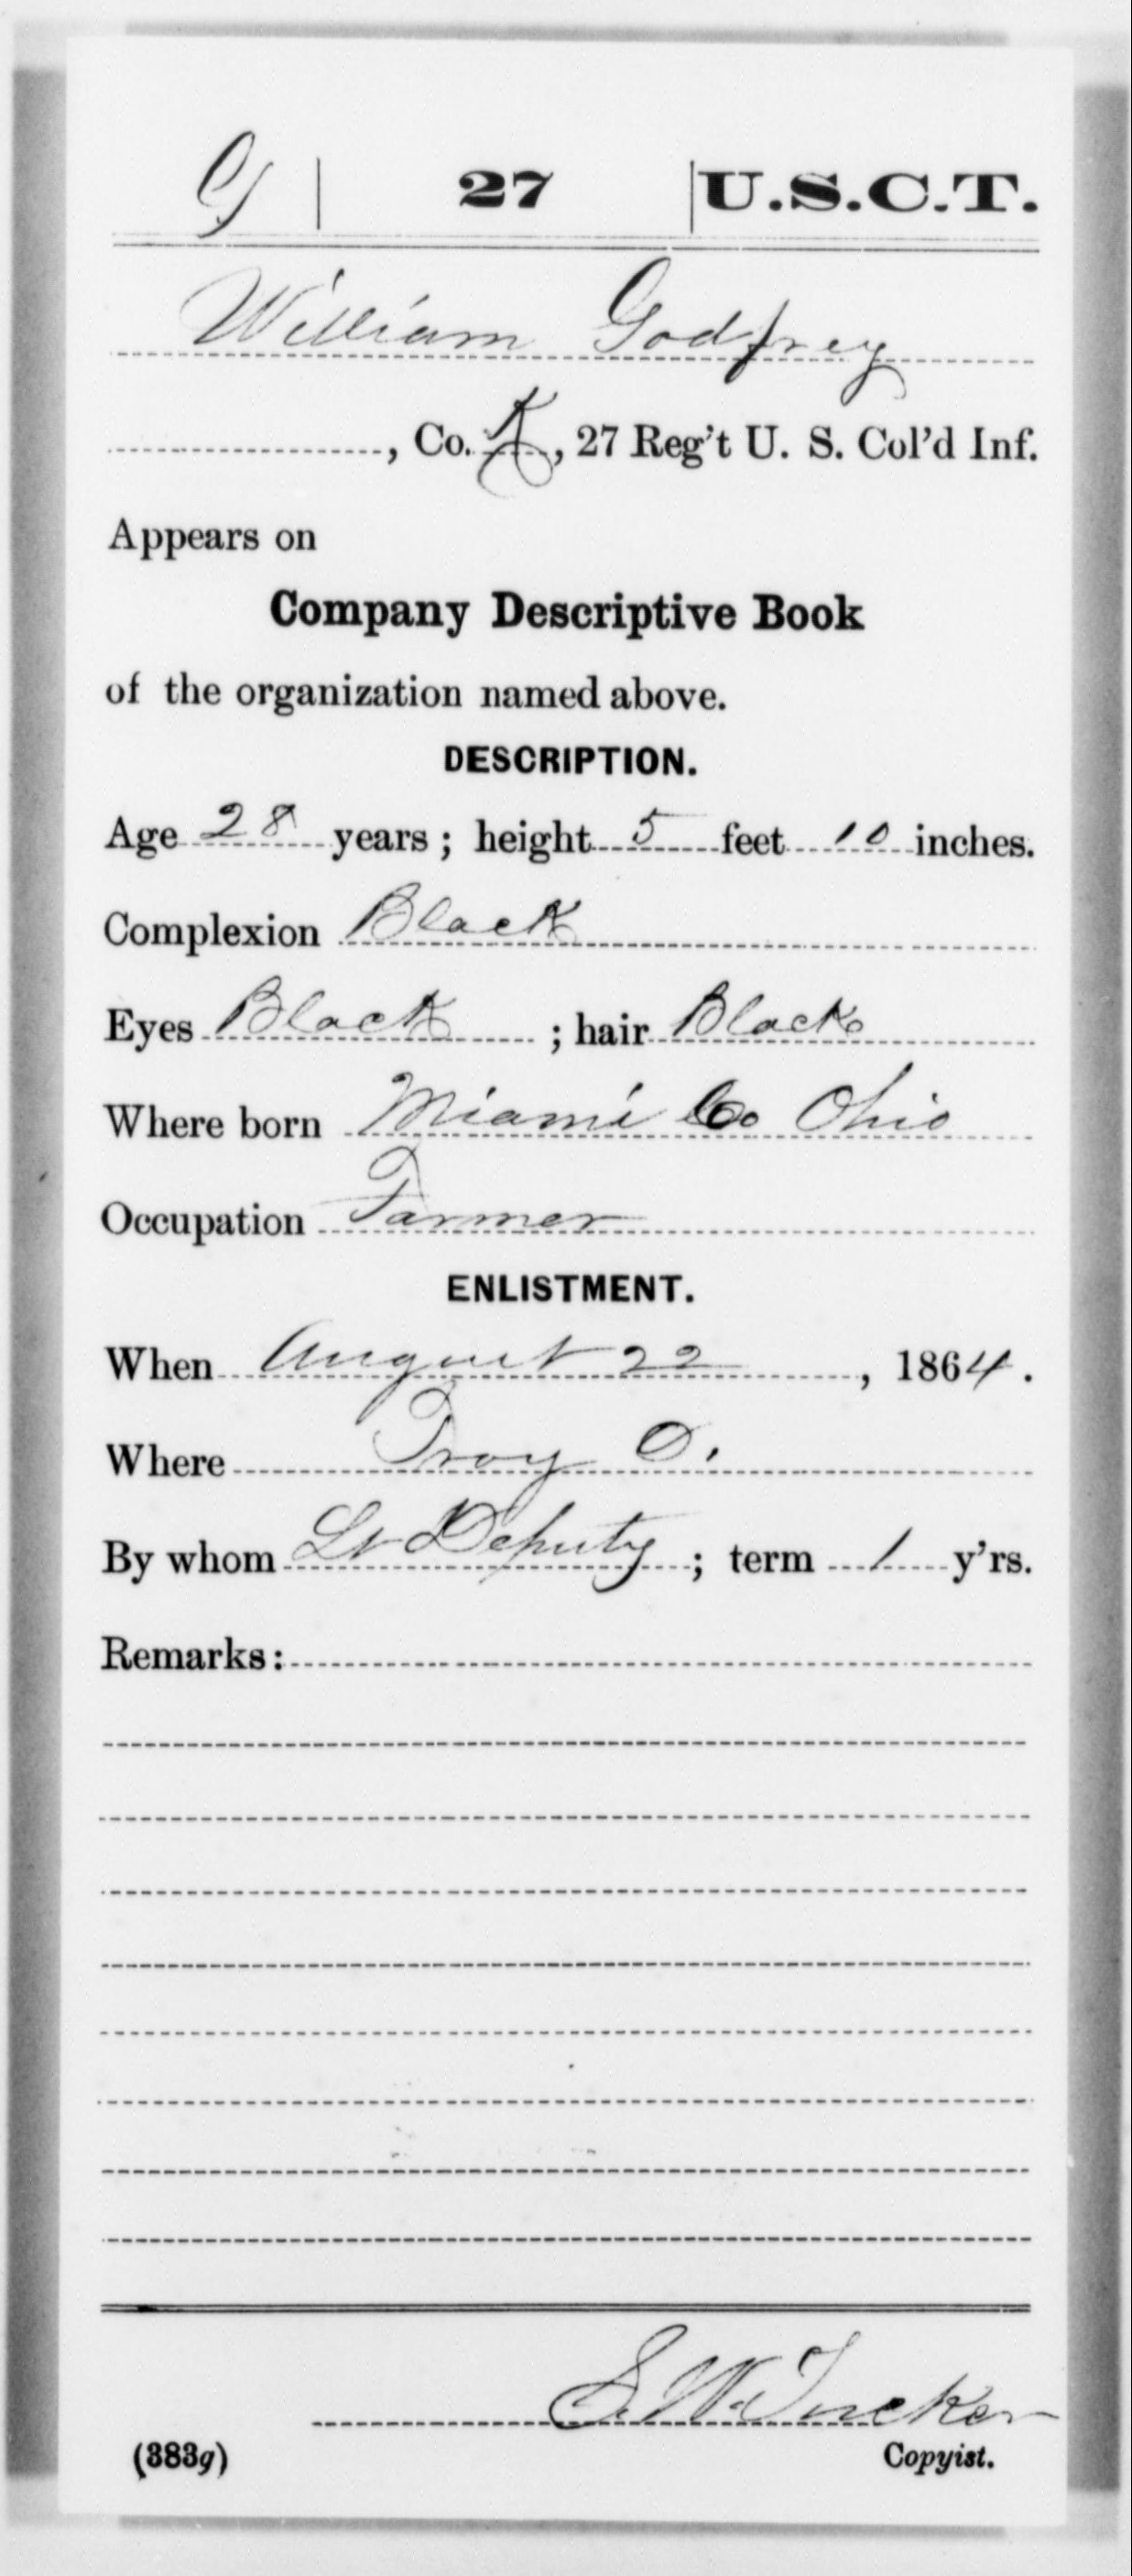 G | 27 | U.S.C.T.
William Godfrey
, Co. K, 27 Reg't U. S. Col'd Inf.
Appears on
Company Descriptive Book
of the organization named above.
DESCRIPTION.
Age 28 years; height 5 feet 10 inches.
Complexion Black
Eyes Black; hair Black
Where born Miami Co Ohio
Occupation Farmer
ENLISTMENT.
When August 22, 1864.
Where Troy O.
By whom Lt Deputy; term 1 y'rs.
Remarks:
S. W. Tucker
(383g) Copyist.